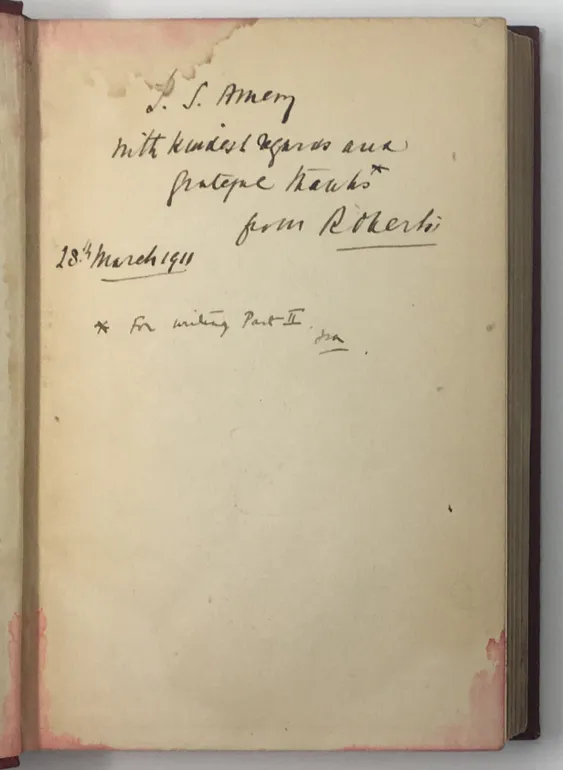 L. S. Amery
with kindest regards and
grateful thanks*
from Roberts
28th March 1911
* For writing Part II.